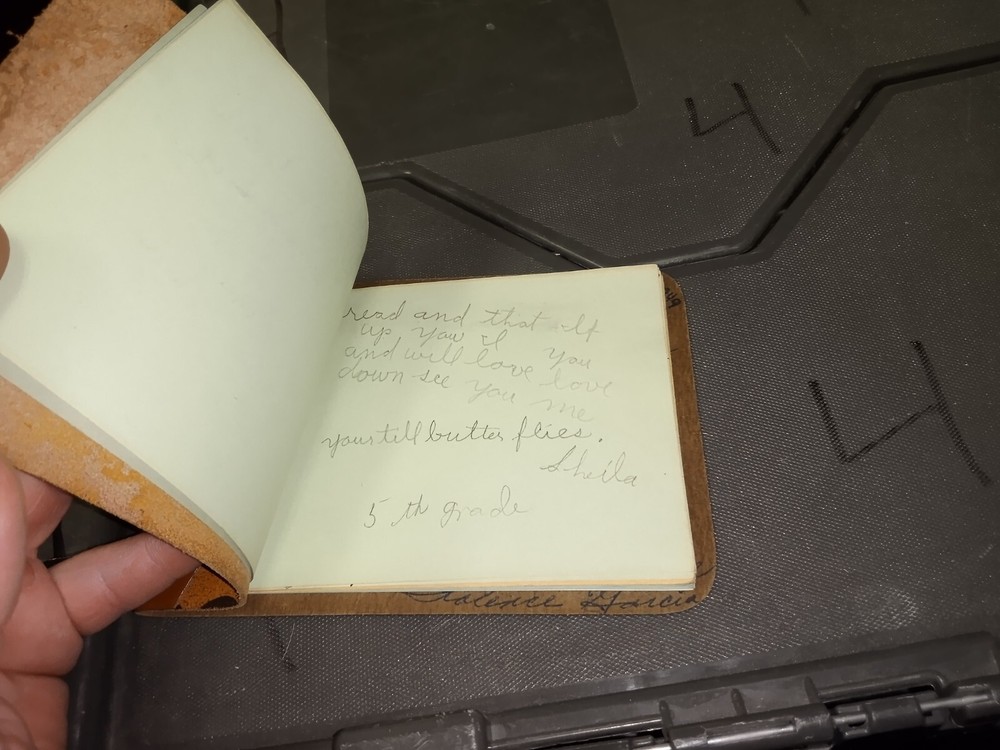 4
4
read and that If
up you I you
and will love love
down see you me
yours till butter flies.
Sheila
5 th grade
Garcia